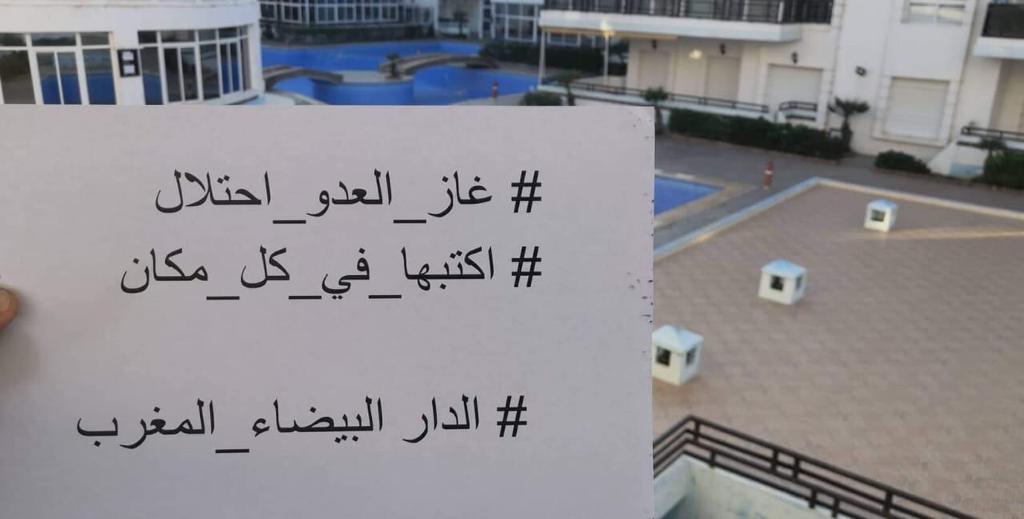 # غاز_العدو_احتلال
# اكتبها_في_كل_مكان
# الدار البيضاء_المغرب